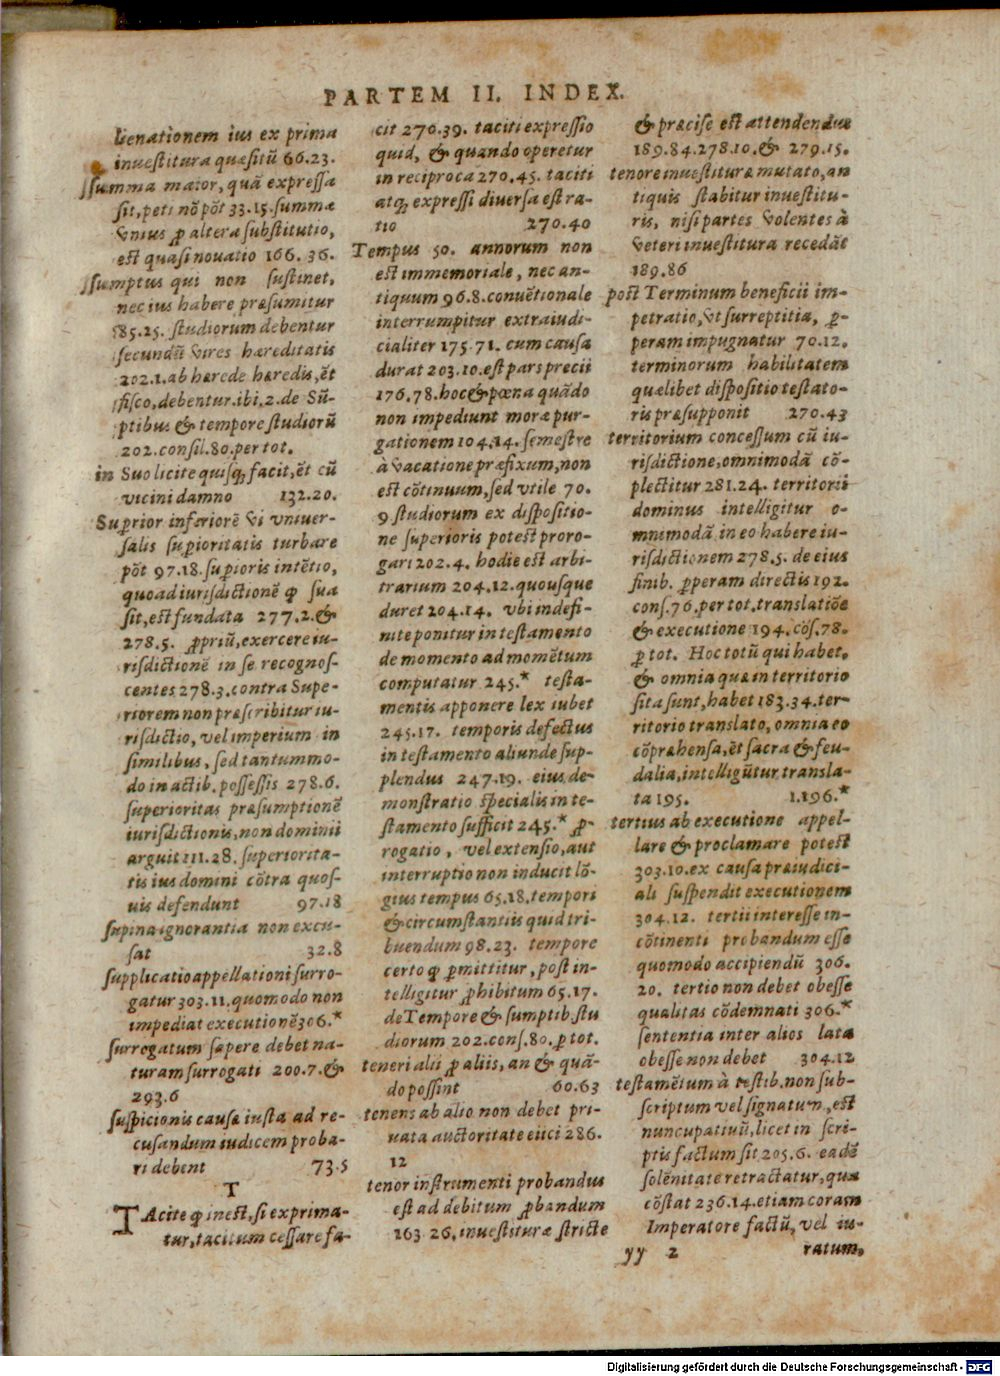 PARTEM II. INDEX.
lienationem ius ex prima
inuestitura quæsitũ 66.23.
summa maior, quã expressa
sit, peti nõ põt 33.15. summæ
vnius ꝑ altera substitutio,
est quasi nouatio 166. 36.
sumptus qui non sustinet,
nec ius habere præsumitur
85.25. studiorum debentur
secundũ vires hæreditatis
202.1. ab hærede hæredis, et
fisco, debentur. ibi. 2. de Sũ-
ptibus & tempore studiorũ
202. consil. 80. per tot.
in Suo licite quisq; facit, et cũ
vicini damno 132.20.
Suꝑior inferiorẽ vi vniuer-
salis suꝑioritatis turbare
põt 97.18. suꝑioris intẽtio,
quoad iurisdictionẽ ꝙ sua
sit, est fundata 277.2. &
278.5. ꝓpriũ, exercere iu-
risdictionẽ in se recognos-
centes 278.3. contra Supe-
riorem non præscribitur iu-
risdictio, vel imperium in
similibus, sed tantummo-
do in actib. possessis 278.6.
superioritas præsumptionẽ
iurisdictionis, non dominii
arguit 111.28. superiorita-
tis ius domini cõtra quos-
uis defendunt 97.18
supina ignorantia non excu-
sat 32.8
supplicatio appellationi surro-
gatur 303.11. quomodo non
impediat executionẽ 306.*
surrogatum sapere debet na-
turam surrogati 200.7. &
293.6
suspicionis causa iusta ad re-
cusandum iudicem proba-
ri debent 73.5
T
TAcite ꝙ inest, si exprima-
tur, tacitum cessare fa-
cit 270.39. taciti expressio
quid, & quando operetur
in reciproca 270.45. taciti
atq; expressi diuersa est ra-
tio 270.40
Tempus 50. annorum non
est immemoriale, nec an-
tiquum 96.8. conuẽtionale
interrumpitur extraiudi-
cialiter 175.71. cum causa
durat 203.10. est pars precii
176.78. hoc & pœna quãdo
non impediunt moræ pur-
gationem 104.14. semestre
à vacatione præfixum, non
est cõtinuum, sed vtile 70.
9 studiorum ex dispositio-
ne superioris potest proro-
gari 202.4. hodie est arbi-
trarium 204.12. quousque
duret 204.14. vbi indefi-
nite ponitur in testamento
de momento ad momẽtum
computatur 245.* testa-
mentis apponere lex iubet
245.17. temporis defectus
in testamento aliunde sup-
plendus 247.19. eius de-
monstratio specialis in te-
stamento sufficit 245.* ꝓ-
rogatio, vel extensio, aut
interruptio non inducit lõ-
gius tempus 65.18. tempori
& circumstantiis quid tri-
buendum 98.23. tempore
certo ꝙ ꝑmittitur, post in-
telligitur ꝓhibitum 65.17.
de Tempore & sumptib. stu
diorum 202. cons. 80. ꝑ tot.
teneri alii ꝓ aliis, an & quã-
do possint 60.63
tenens ab alio non debet pri-
uata auctoritate eiici 286.
12
tenor instrumenti probandus
est ad debitum ꝓbandum
163 26. inuestituræ stricte
& præcise est attendendus
189.84. 278.10. & 279.15.
tenore inuestituræ mutato, an
tiquis stabitur inuestitu-
ris, nisi partes volentes à
veteri inuestitura recedãt
189.86
post Terminum beneficii im-
petratio, vt surreptitia, ꝓ-
peram impugnatur 70.12.
terminorum habilitatem
quælibet dispositio testato-
ris præsupponit 270.43
territorium concessum cũ iu-
risdictione, omnimodã cõ-
plectitur 281.24. territorii
dominus intelligitur o-
mnimodã in eo habere iu-
risdictionem 278.5. de eius
finib. ꝓperam directis 192.
cons. 76. per tot. translatiõe
& executione 194. cõs. 78.
ꝑ tot. Hoc totũ qui habet,
& omnia quæ in territorio
sita sunt, habet 183.34. ter-
ritorio translato, omnia eo
cõpræhensa, et sacra & feu-
dalia, intelligũtur transla-
ta 195. 1.196.*
tertius ab executione appel-
lare & proclamare potest
303.10. ex causa præiudici-
ali suspendit executionem
304.12. tertii interesse in-
cõtinenti probandum esse
quomodo accipiendũ 306.
20. tertio non debet obesse
qualitas cõdemnati 306.*
sententia inter alios lata
obesse non debet 304.12
testamẽtum à testib. non sub-
scriptum vel signatum, est
nuncupatiuũ, licet in scri-
ptis factum sit 205.6. eadẽ
solẽnitate retractatur, qua
cõstat 236.14. etiam coram
Imperatore factũ, vel iu-
yy 2 ratum,
Digitalisierung gefördert durch die Deutsche Forschungsgemeinschaft - DFG